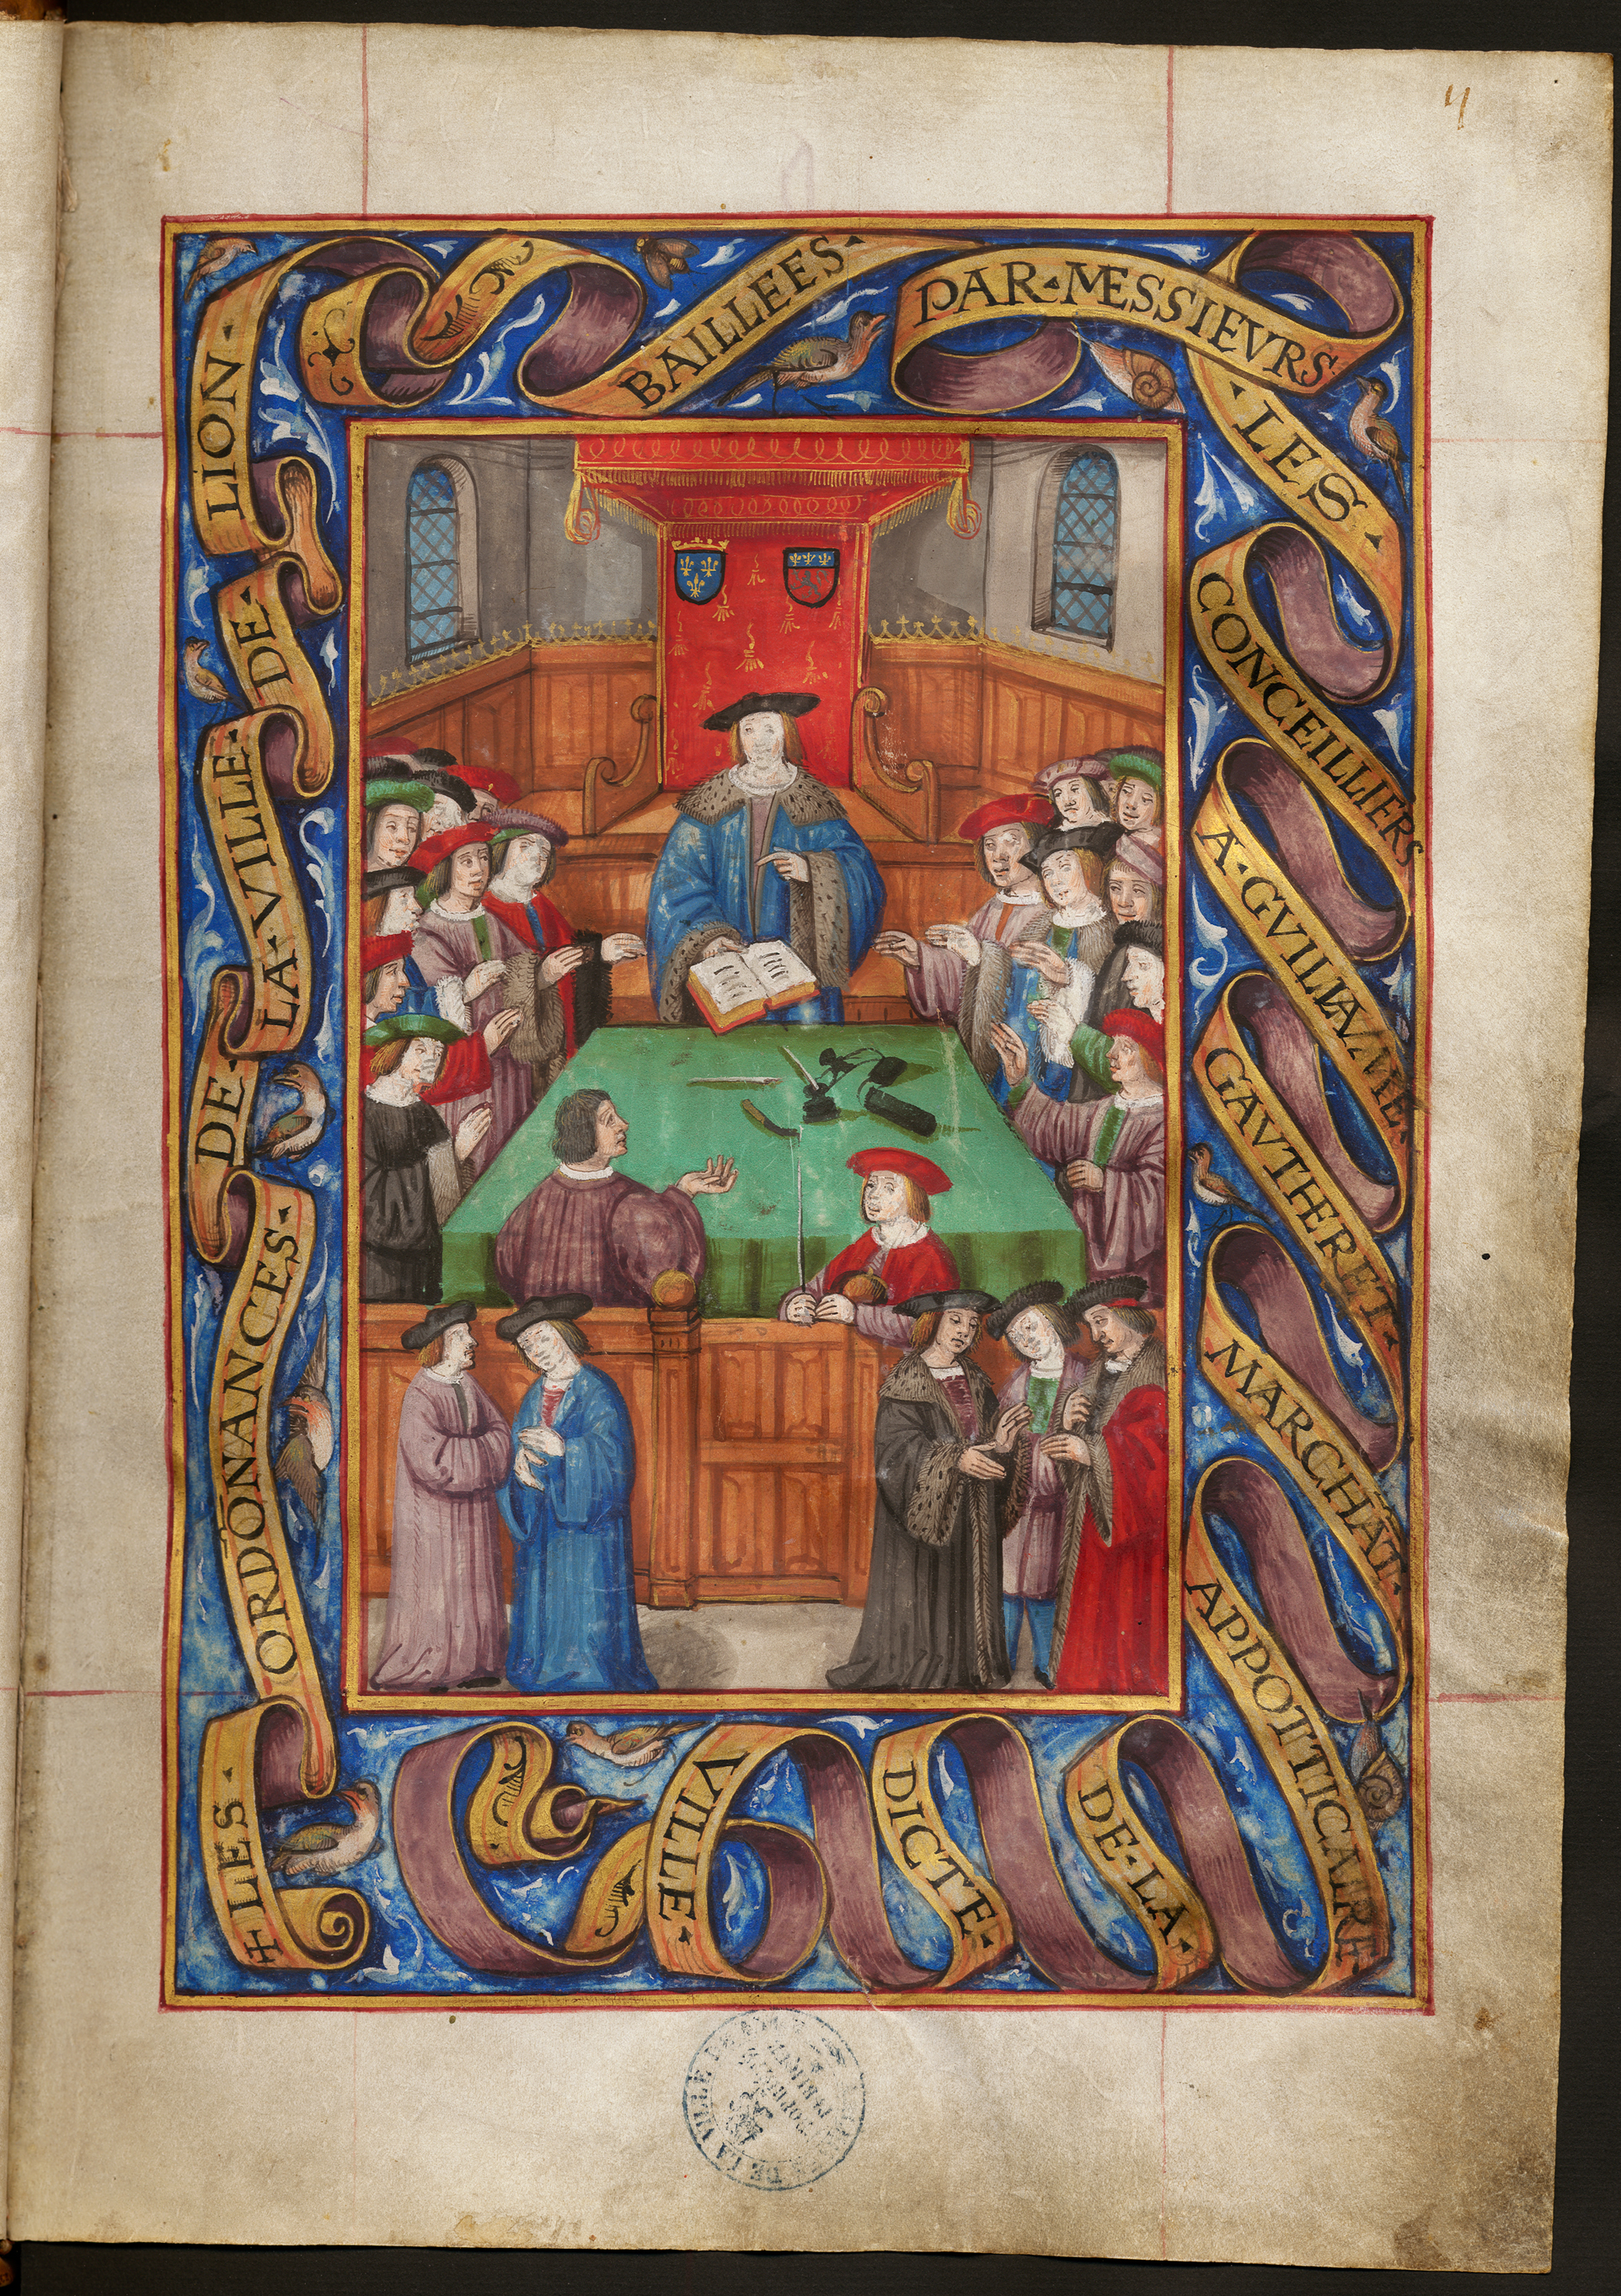 + LES·
ORDŌNANCES·
DE·
LA·VILLE·
DE·
LION·
BAILLEES·
PAR·MESSIEVRS
·LES·
CONCEILLIERS
A·GVILIAVME·
GAVTHERET·
MARCHĀT·
APPOTTICAIRE·
DE·LA·
DICTE·
VILLE·
DE LA VILLE